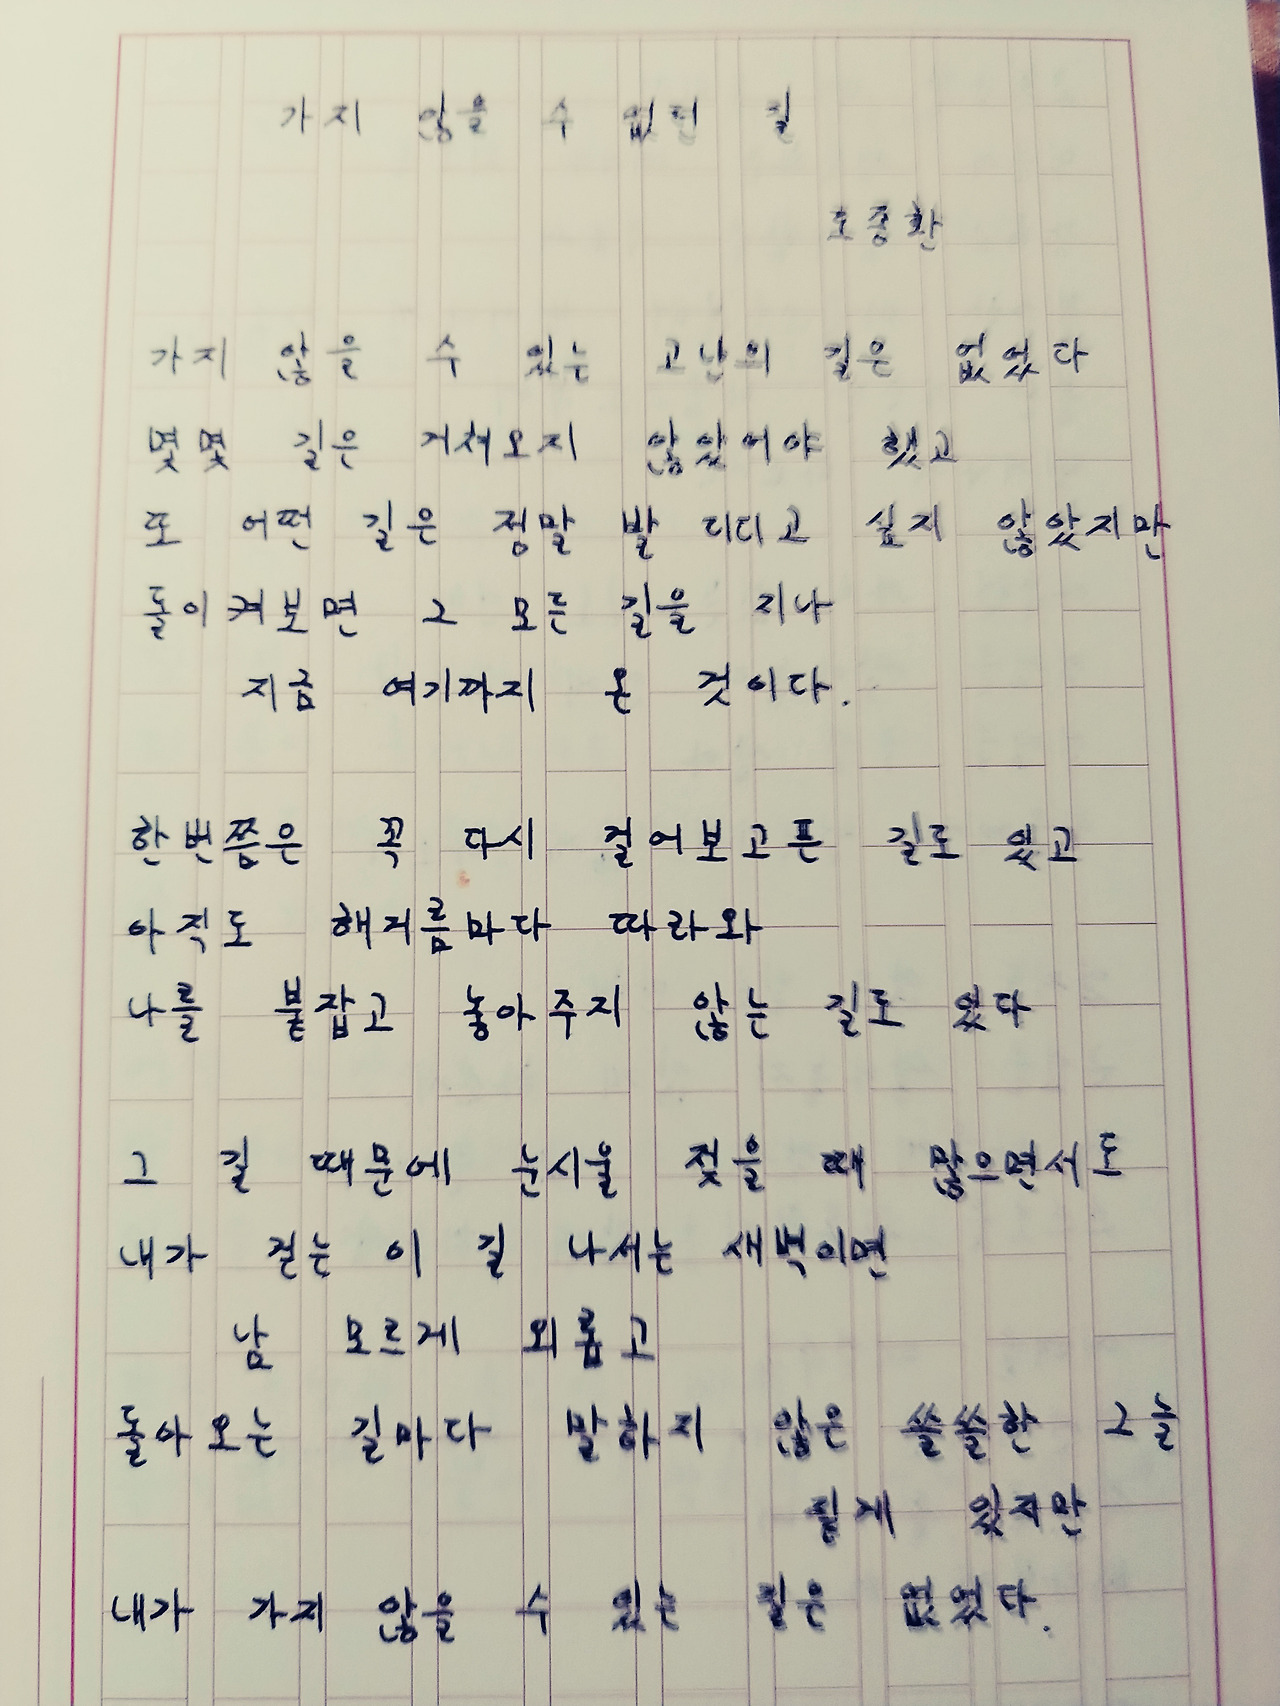 가지 않을 수 없던 길
도종환
가지 않을 수 있는 고난의 길은 없었다
몇몇 길은 거쳐오지 않았어야 했고
또 어떤 길은 정말 발 디디고 싶지 않았지만
돌이켜보면 그 모든 길을 지나
지금 여기까지 온 것이다.
한번쯤은 꼭 다시 걸어보고픈 길도 있고
아직도 해거름마다 따라와
나를 붙잡고 놓아주지 않는 길도 있다
그 길 때문에 눈시울 젖을 때 많으면서도
내가 걷는 이 길 나서는 새벽이면
남 모르게 외롭고
돌아오는 길마다 말하지 않은 쓸쓸한 그늘
짙게 있지만
내가 가지 않을 수 있는 길은 없었다.